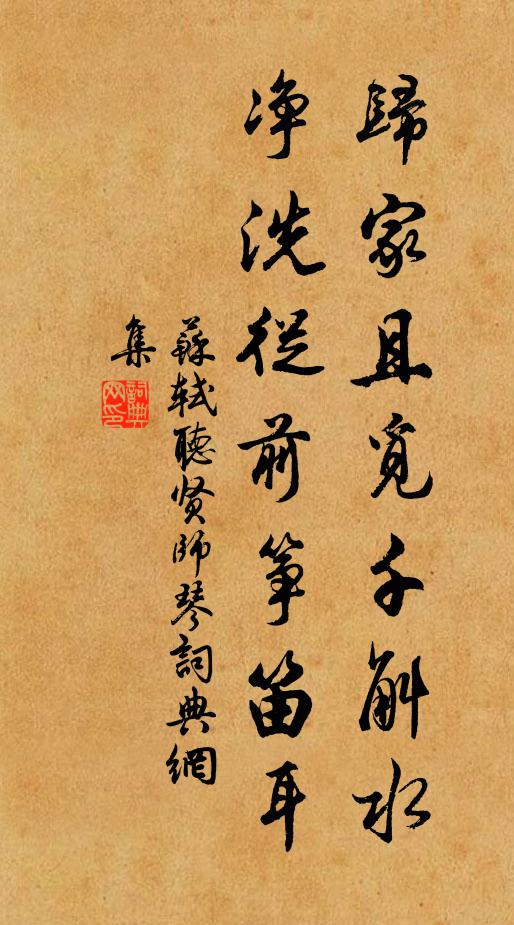 歸家且覓千斛水
淨洗從前筝笛耳
蘇軾聽贤師琴詞典網
集
詞典网印